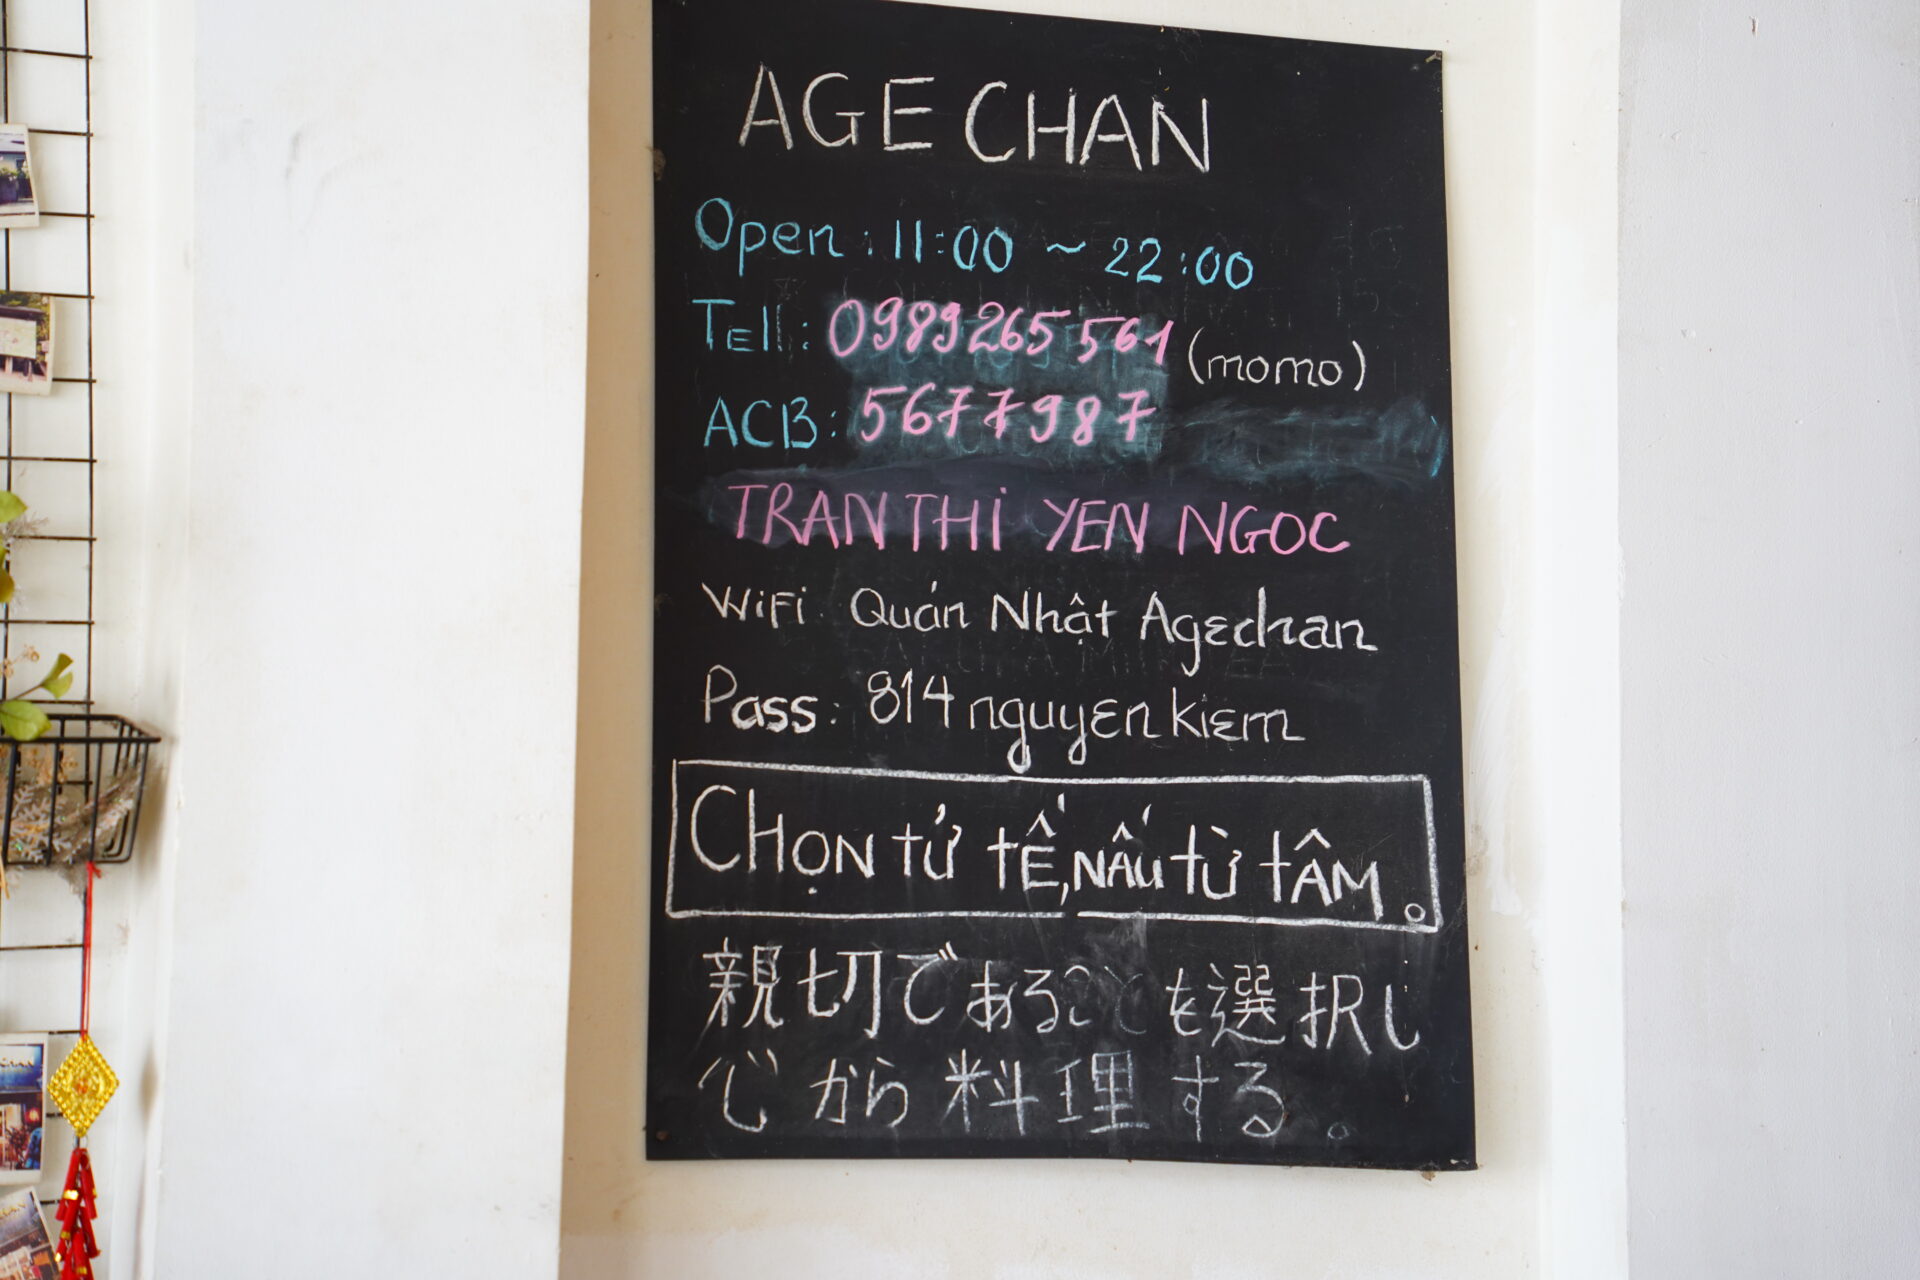 AGE CHAN
Open : 11:00 ~ 22:00
TEll : 0989265 561 (momo)
ACB : 5677987
TRAN THI YEN NGOC
WiFi : Quán Nhật Agechan
Pass : 814 nguyen kiem
CHỌN tử tẾ, NẤu từ tÂM 。
親切であることを選択し
心から料理する。